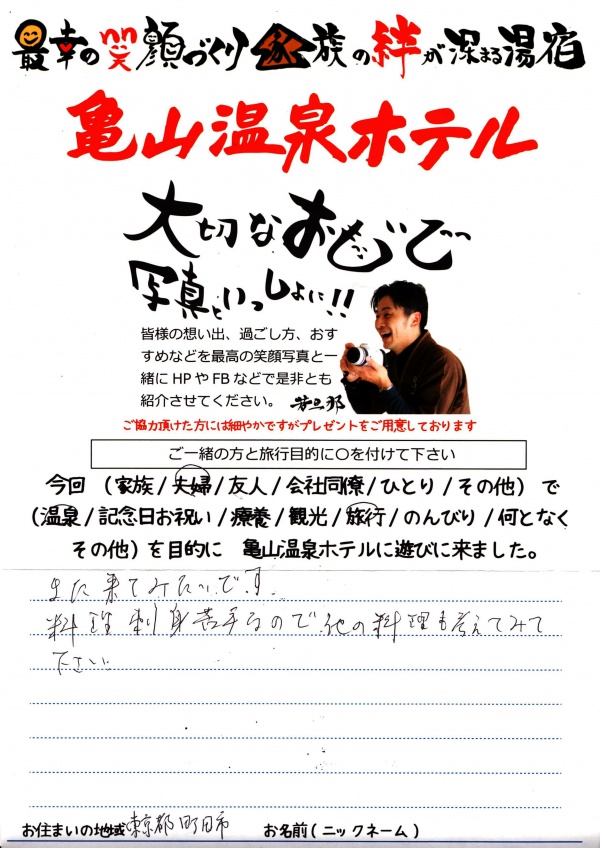 最幸の笑顔づくり 家族の絆が深まる湯宿
亀山温泉ホテル
大切なおもいで
写真といっしょに!!
皆様の想い出、過ごし方、おす
すめなどを最高の笑顔写真と一
緒にHPやFBなどで是非とも
紹介させてください。 若旦那
ご協力頂けた方には細やかですがプレゼントをご用意しております
ご一緒の方と旅行目的に○を付けて下さい
今回 (家族/夫婦/友人/会社同僚/ひとり/その他) で
(温泉/記念日お祝い/療養/観光/旅行/のんびり/何となく
その他) を目的に 亀山温泉ホテルに遊びに来ました。
また来てみたいです。
料理刺身苦手なので他の料理も考えてみて
下さい
お住まいの地域 東京都町田市 お名前(ニックネーム)